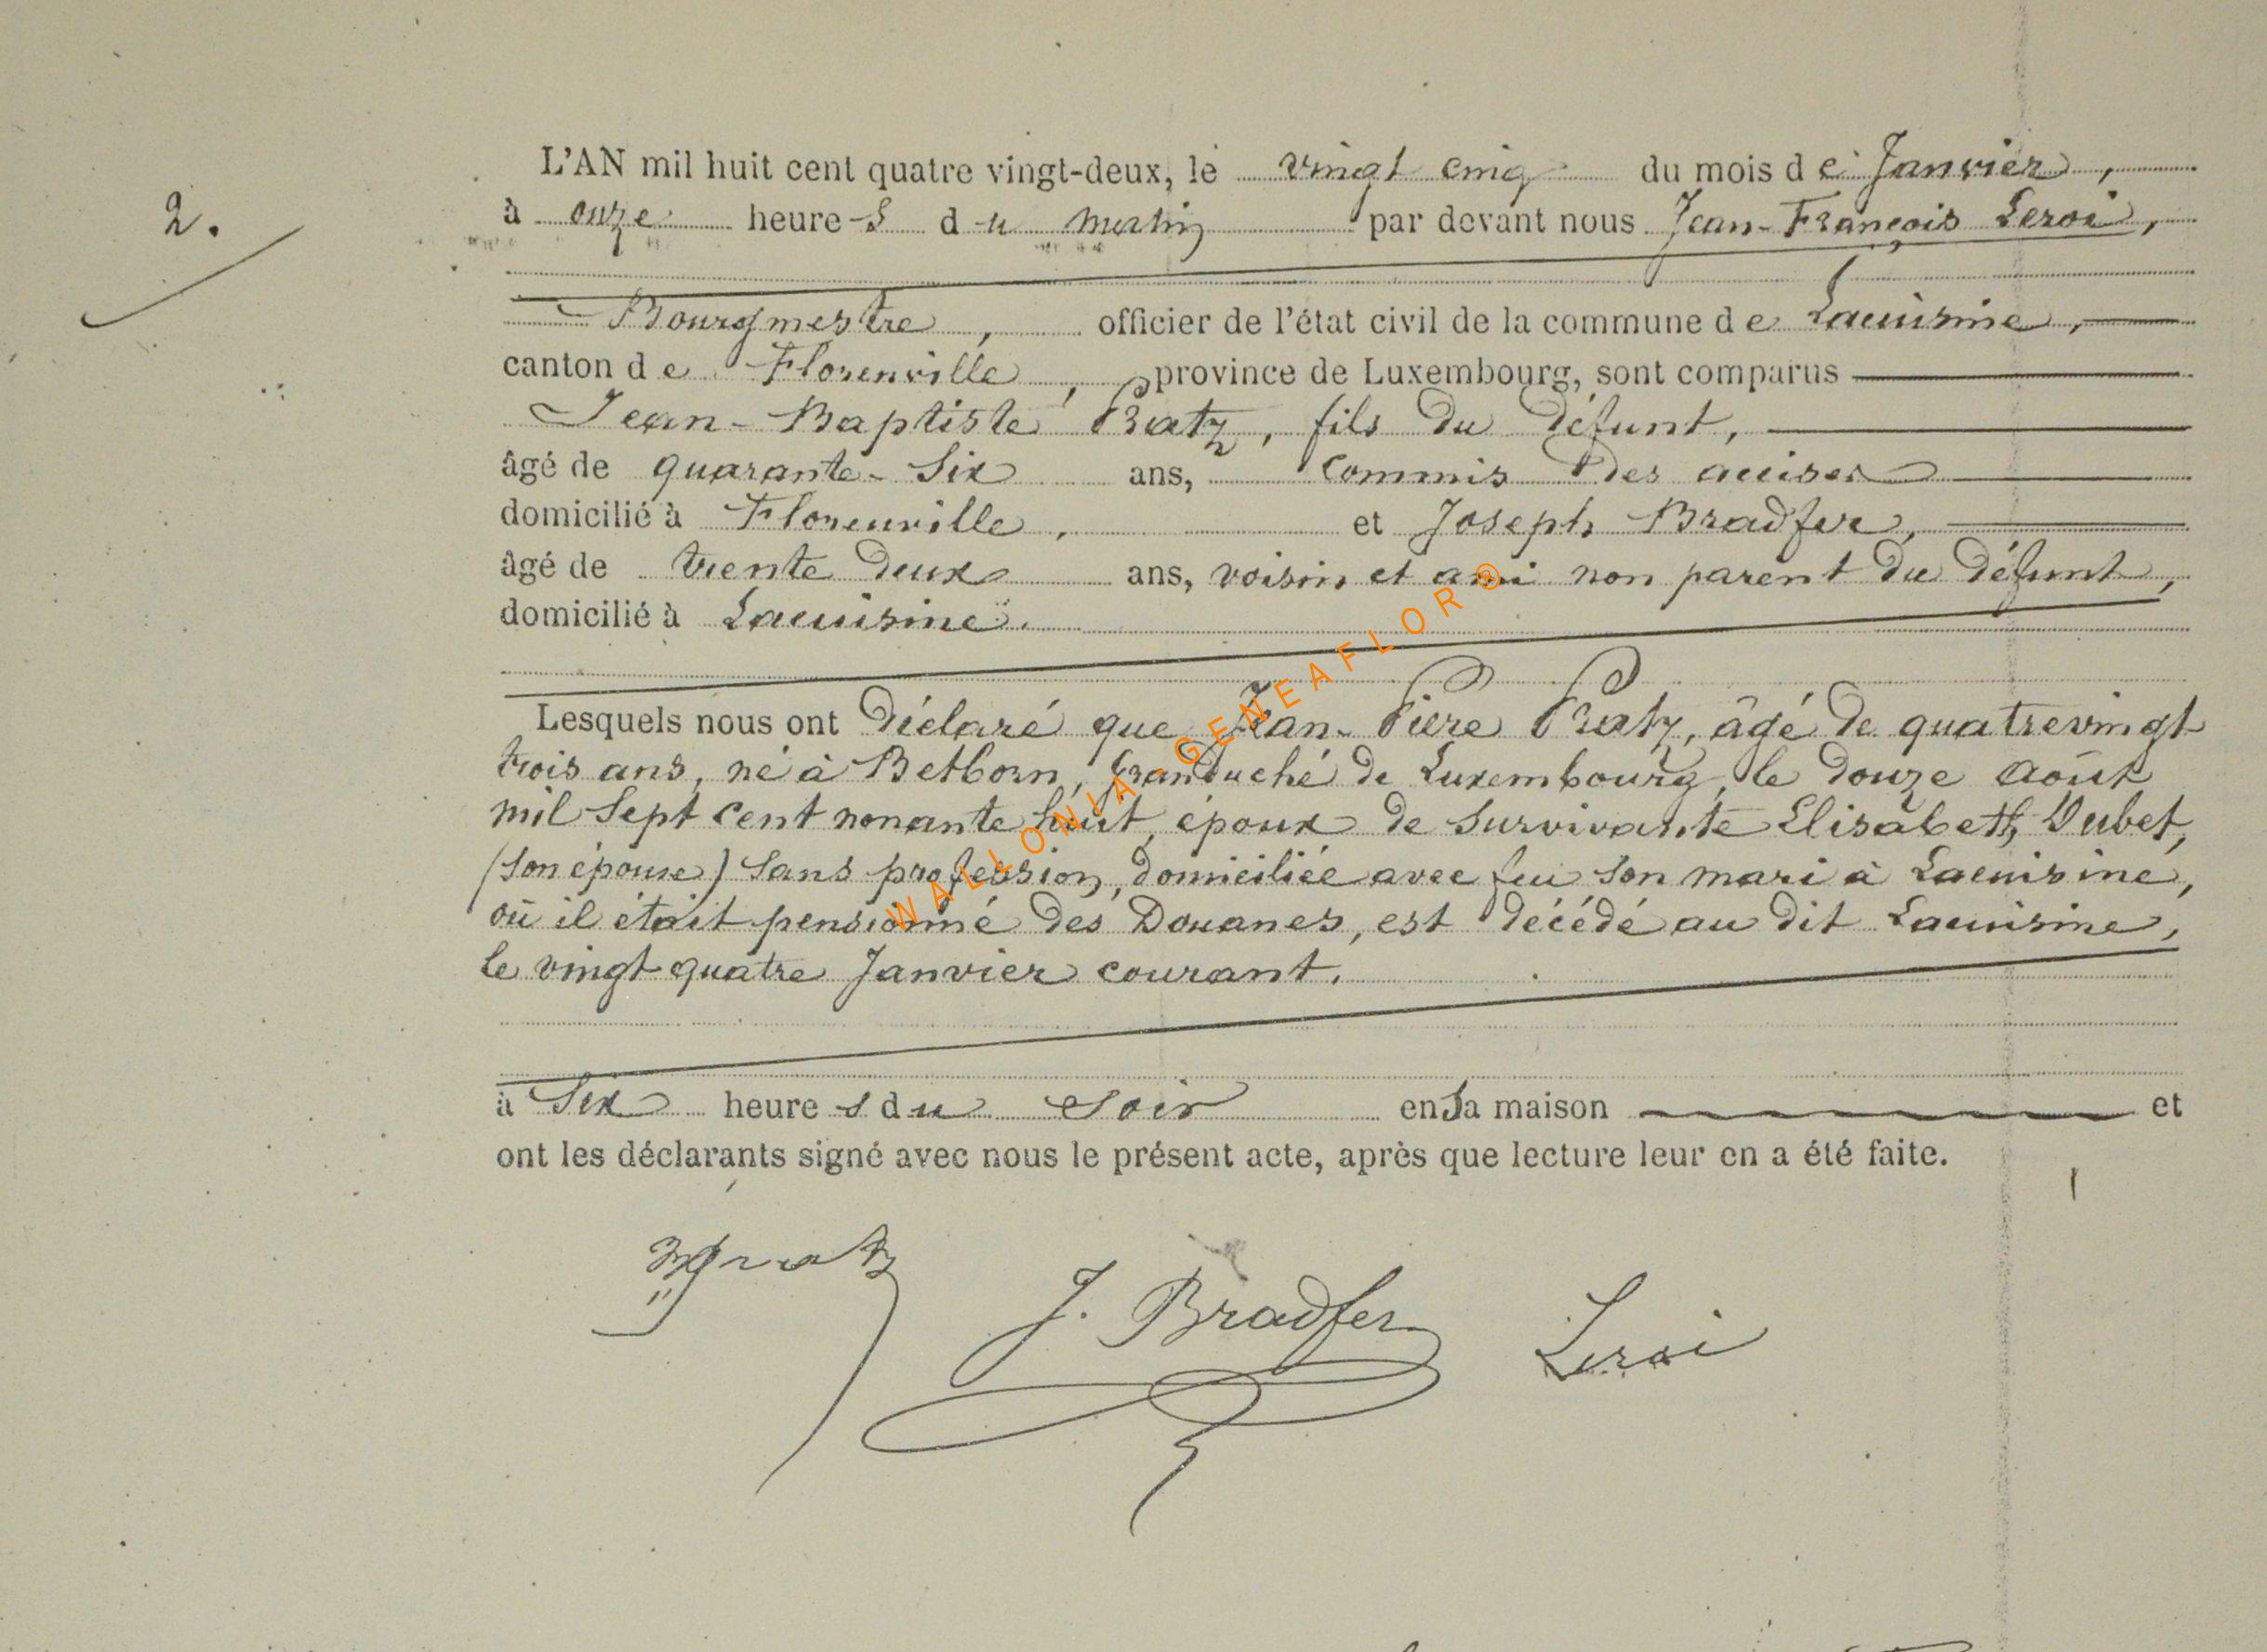 2.
L'AN mil huit cent quatre vingt-deux, le vingt cinq du mois de Janvier,
à onze heures du matin par devant nous Jean-François Leroi,
Bourgmestre, officier de l'état civil de la commune de Lacuisine,
canton de Florenville, province de Luxembourg, sont comparus
Jean-Baptiste Pratz, fils du défunt,
âgé de quarante-six ans, commis des accises
domicilié à Florenville, et Joseph Bradfer,
âgé de trente deux ans, voisin et ami non parent du défunt,
domicilié à Lacuisine.
Lesquels nous ont déclaré que Jean-Pierre Pratz, âgé de quatrevingt
trois ans, né à Betborn, Granduché de Luxembourg, le douze août
mil sept cent nonante huit, époux de survivante Elisabeth Dubet,
(son épouse) sans profession, domiciliée avec feu son mari à Lacuisine,
où il était pensionné des Douanes, est décédé au dit Lacuisine,
le vingt quatre Janvier courant.
à six heures du soir en sa maison et
ont les déclarants signé avec nous le présent acte, après que lecture leur en a été faite.
Pratz
J. Bradfer
Leroi
WALLONIA-GENEAFLOR®